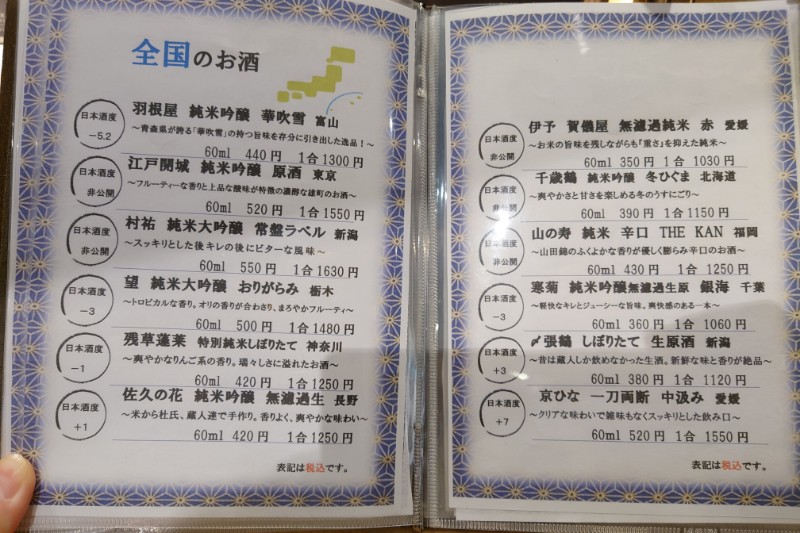 全国のお酒
日本酒度
－5.2
羽根屋 純米吟醸 華吹雪 富山
～青森県が誇る「華吹雪」の持つ旨味を存分に引き出した逸品！～
60ml 440円 1合1300円
日本酒度
非公開
江戸開城 純米吟醸 原酒 東京
～フルーティーな香りと上品な酸味が特徴の濃醇な雄町のお酒～
60ml 520円 1合1550円
日本酒度
非公開
村祐 純米大吟醸 常盤ラベル 新潟
～スッキリとした後キレの後にビターな風味～
60ml 550円 1合1630円
日本酒度
－3
望 純米大吟醸 おりがらみ 栃木
～トロピカルな香り。オリの香りが合わさり、まろやかフルーティ～
60ml 500円 1合1480円
日本酒度
－1
残草蓬莱 特別純米しぼりたて 神奈川
～爽やかなりんご系の香り。瑞々しさに溢れたお酒～
60ml 420円 1合1250円
日本酒度
＋1
佐久の花 純米吟醸 無濾過生 長野
～米から杜氏、蔵人達で手作り。香りよく、爽やかな味わい～
60ml 420円 1合1250円
表記は税込です。
日本酒度
非公開
伊予 賀儀屋 無濾過純米 赤 愛媛
～お米の旨味を残しながらも「重さ」を抑えた純米～
60ml 350円 1合 1030円
日本酒度
非公開
千歳鶴 純米吟醸 冬ひぐま 北海道
～爽やかさと甘さを楽しめる冬のうすにごり～
60ml 390円 1合1150円
日本酒度
非公開
山の寿 純米 辛口 THE KAN 福岡
～山田錦のふくよかな香りが優しく膨らみ辛口のお酒～
60ml 430円 1合1250円
日本酒度
－3
寒菊 純米吟醸無濾過生原 銀海 千葉
～軽快なキレとジューシーな旨味。爽快感のある一本～
60ml 360円 1合 1060円
日本酒度
＋3
〆張鶴 しぼりたて 生原酒 新潟
～昔は蔵人しか飲めなかった生酒。新鮮な味と香りが絶品～
60ml 380円 1合 1120円
日本酒度
＋7
京ひな 一刀両断 中汲み 愛媛
～クリアな味わいで雑味もなくスッキリとした飲み口～
60ml 520円 1合 1550円
表記は税込です。